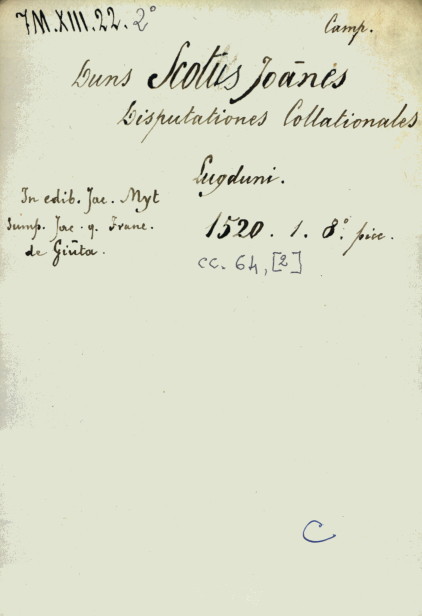 7M.XIII.22.2°
Camp.
Duns Scotus Joānes
Disputationes Collationales
Lugduni.
In edib. Jac. Myt
sump. Jac. q. Franc.
de Giūta.
1520. 1. 8.° picc.
cc. 64, [2]
C